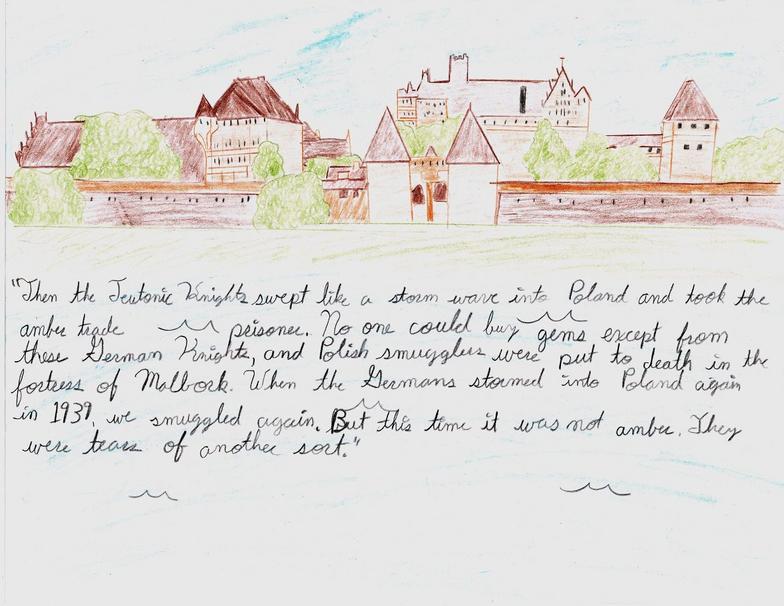 "Then the Teutonic Knights swept like a storm wave into Poland and took the
amber trade prisoner. No one could buy gems except from
these German Knights, and Polish smugglers were put to death in the
fortress of Malbork. When the Germans stormed into Poland again
in 1939, we smuggled again. But this time it was not amber. They
were tears of another sort."